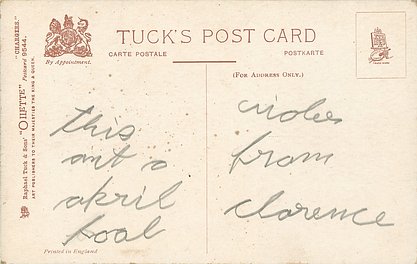 TUCK'S POST CARD
CARTE POSTALE
POSTKARTE
(FOR ADDRESS ONLY.)
By Appointment.
Raphael Tuck & Sons' "OILETTE" "CHARGERS" Postcard 9544.
ART PUBLISHERS TO THEIR MAJESTIES THE KING & QUEEN.
this
ant a
april
foal
from
clarence
Printed in England